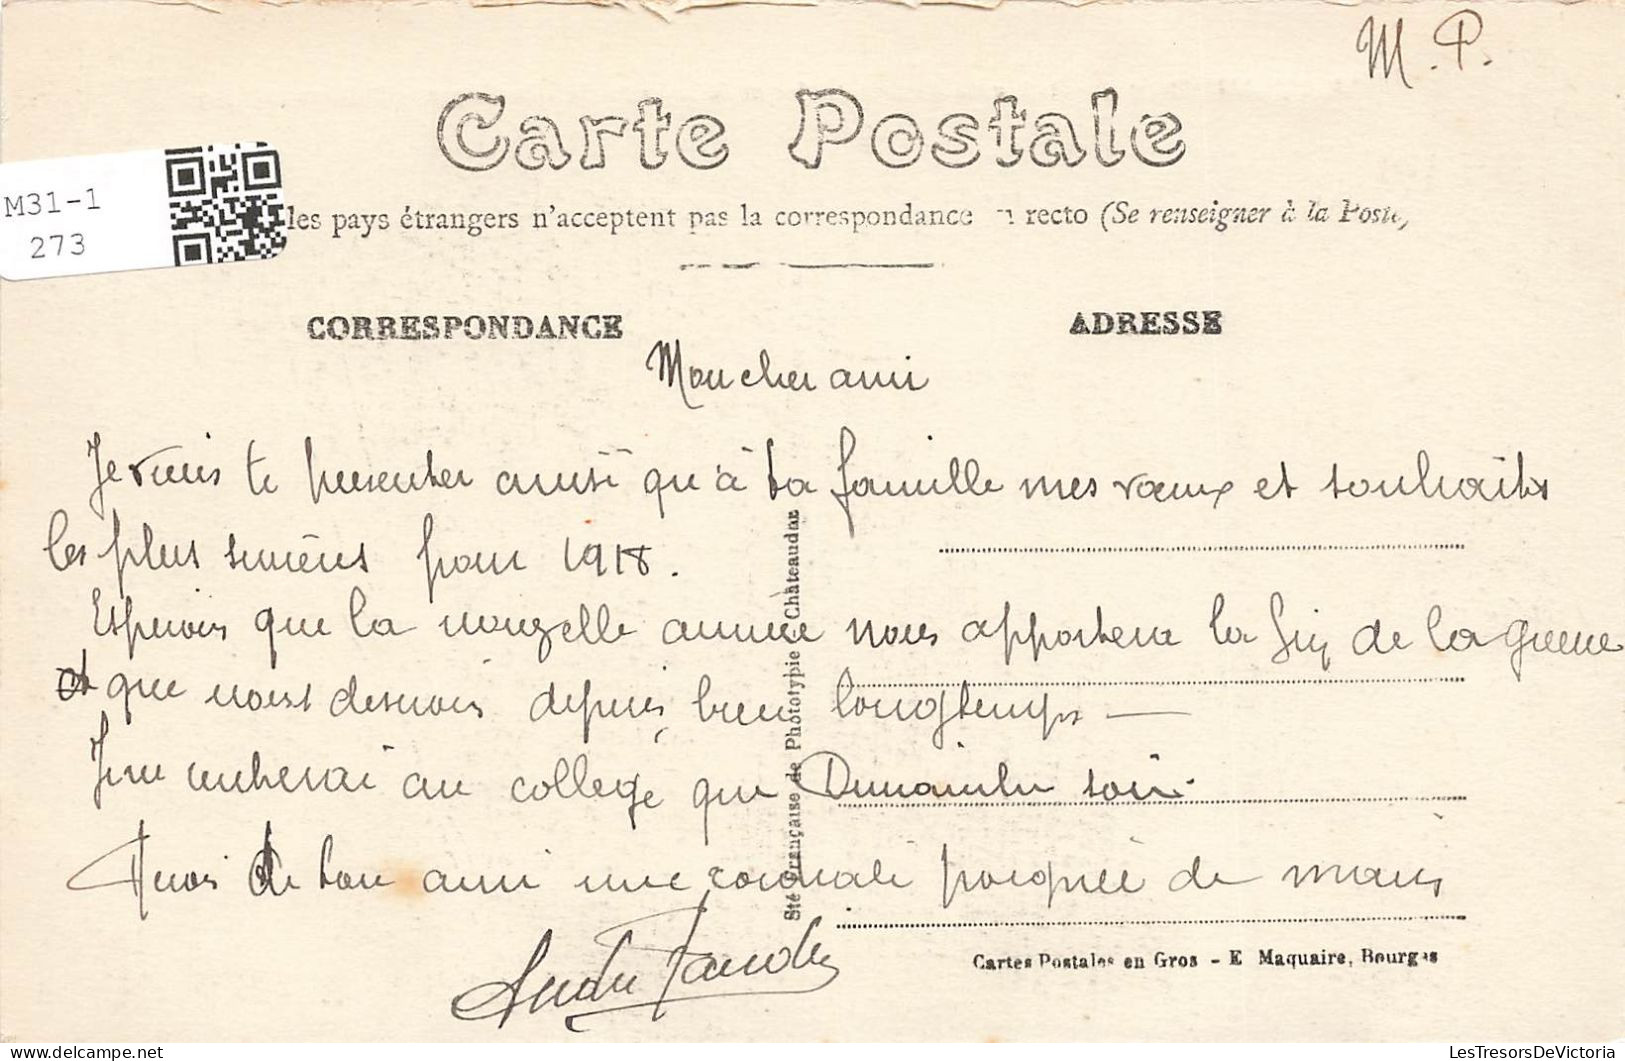 M. P.
Carte Postale
M31-1
273
les pays étrangers n'acceptent pas la correspondance recto (Se renseigner à la Poste)
CORRESPONDANCE
ADRESSE
Mon cher ami
Je viens te présenter ainsi qu'à ta famille mes vœux et souhaits
les plus sincères pour 1918.
Espérons que la nouvelle année nous apportera la fin de la guerre
et que nous désirons depuis bien longtemps —
Je ne rentrerai au collège que Dimanche soir.
Reçois de ton ami une cordiale poignée de mains
André
Sté Française de Phototypie Châteaudun
Cartes Postales en Gros - E Maquaire, Bourges
LesTresorsDeVictoria - Delcampe.net